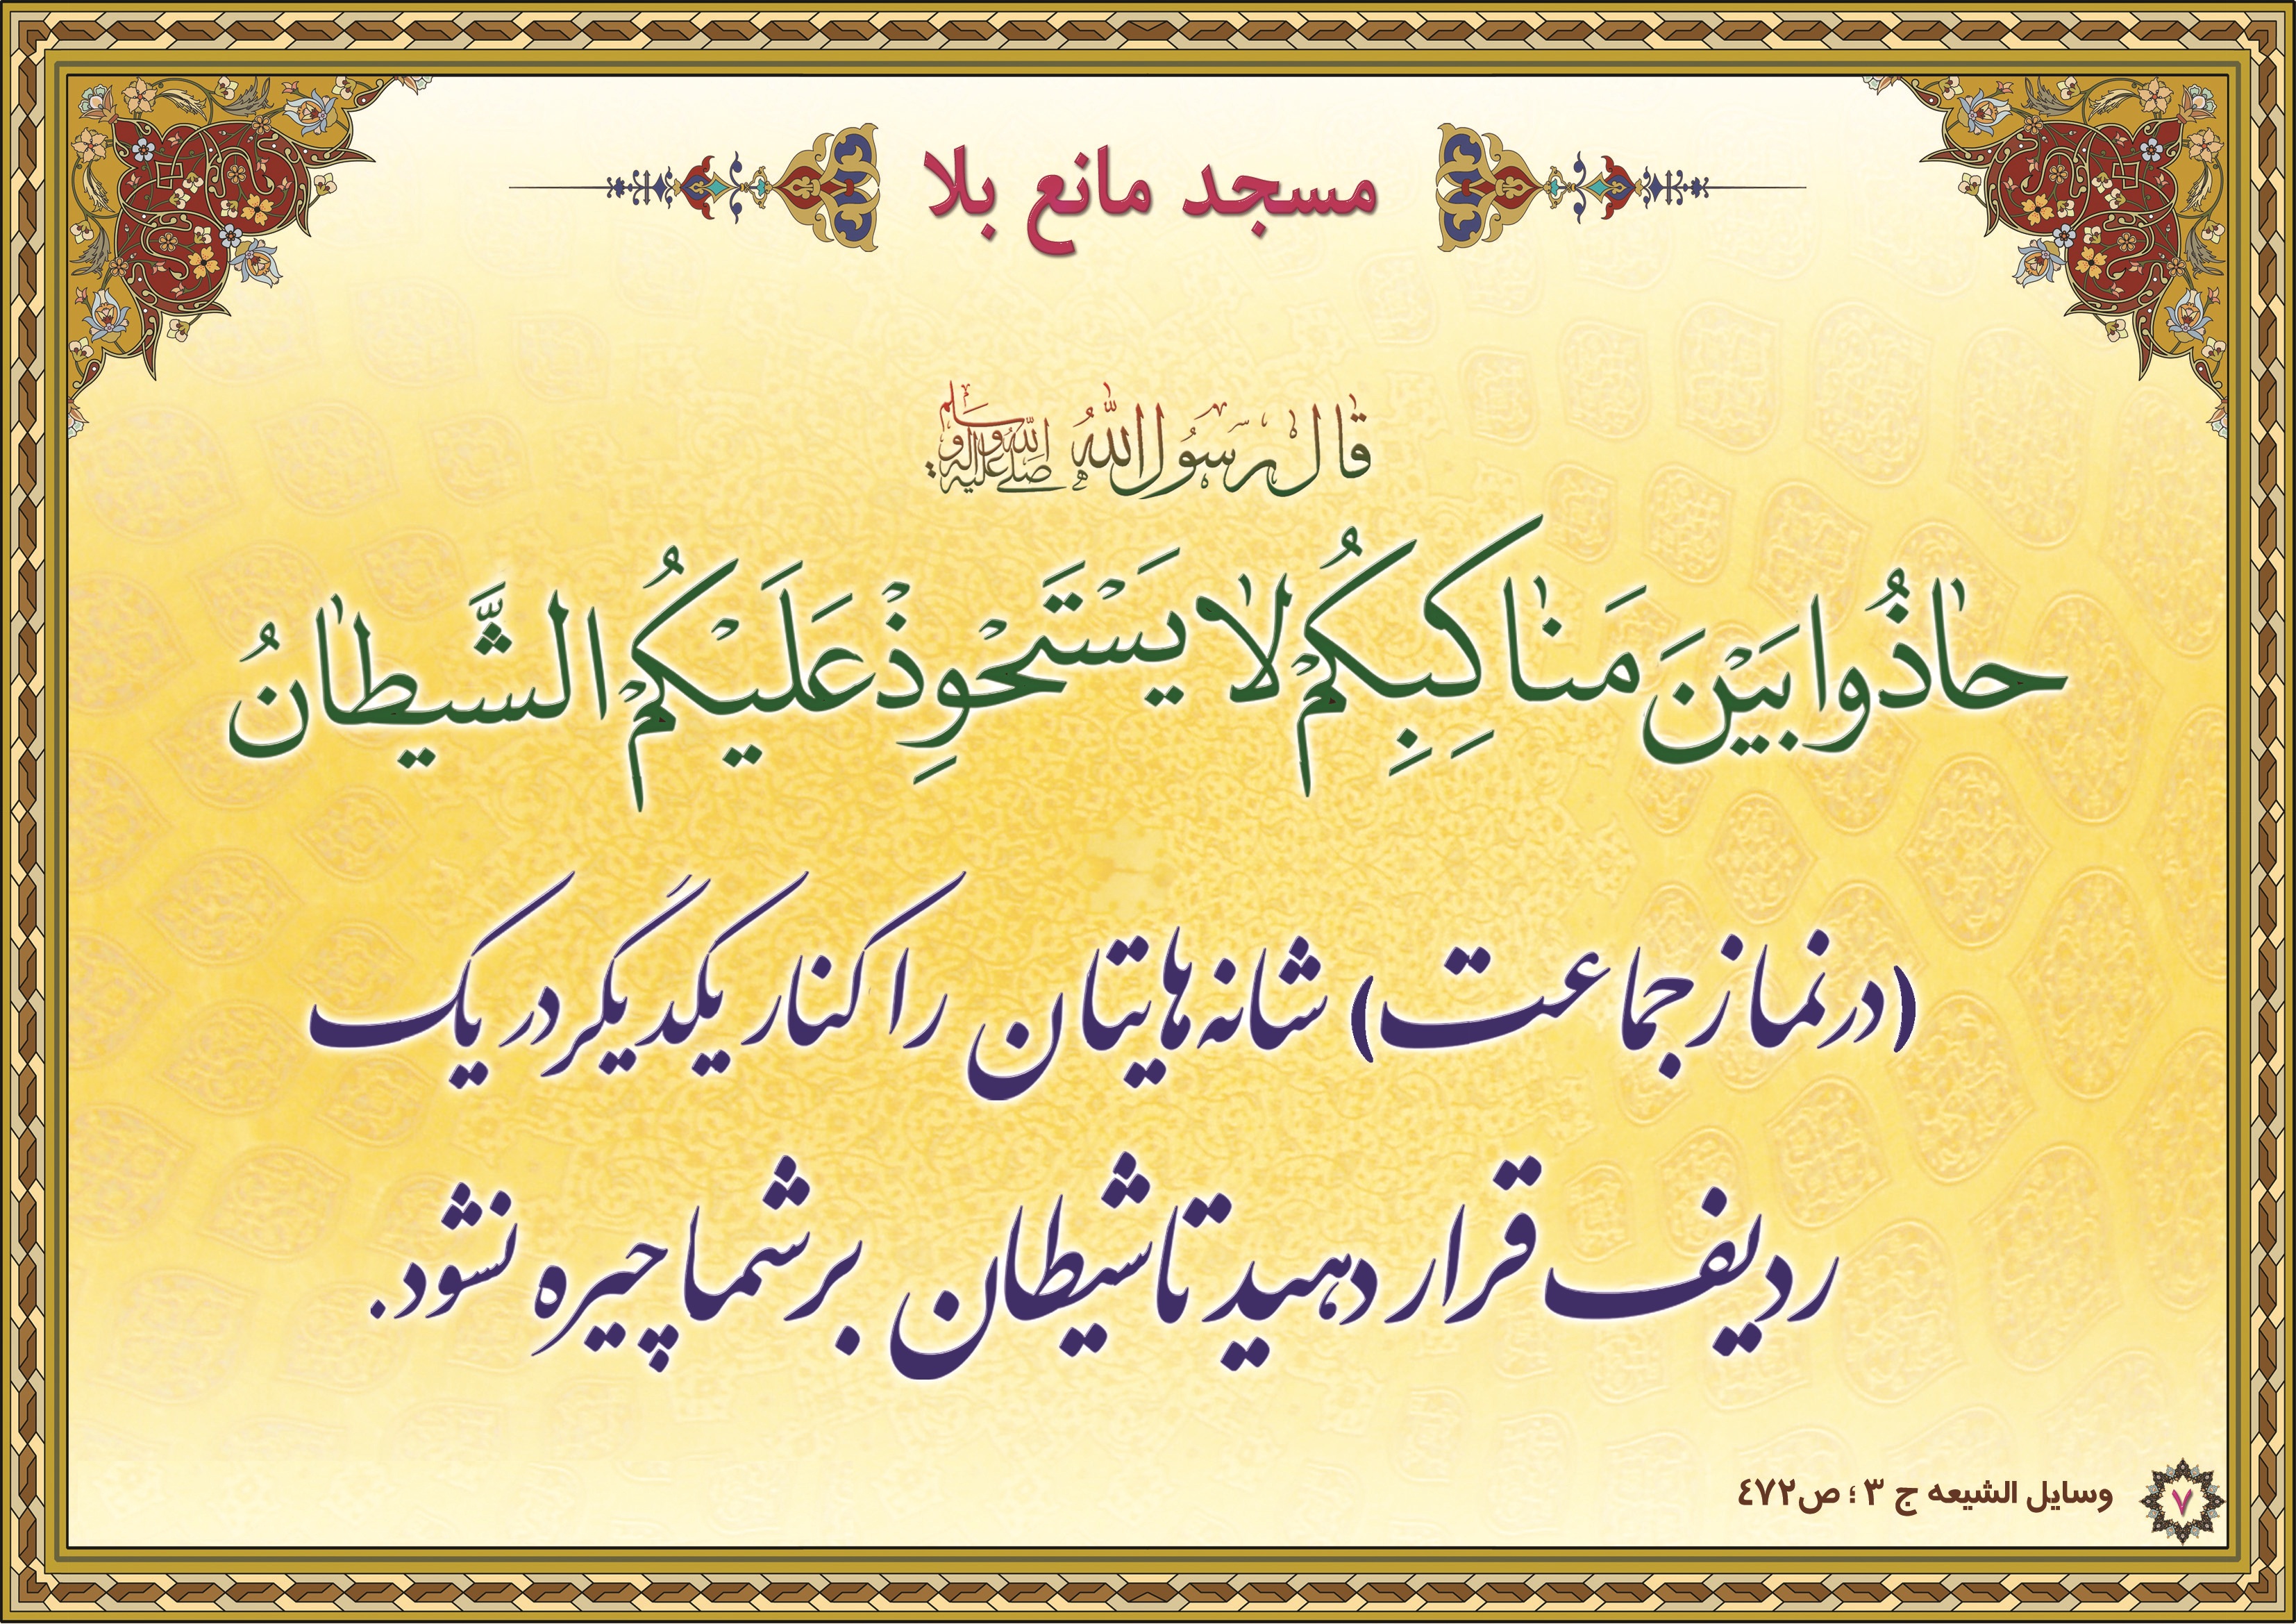 مسجد مانع بلا
قال رسول الله صلی الله علیه و آله و سلم
حاذُوا بَیْنَ مَناکِبِکُمْ لا یَسْتَحْوِذْ عَلَیْکُمُ الشَّیطانُ
(در نماز جماعت) شانه هایتان را کنار یکدیگر در یک
ردیف قرار دهید تا شیطان بر شما چیره نشود.
وسایل الشیعه ج ۳ ؛ ص۴۷۲
۷